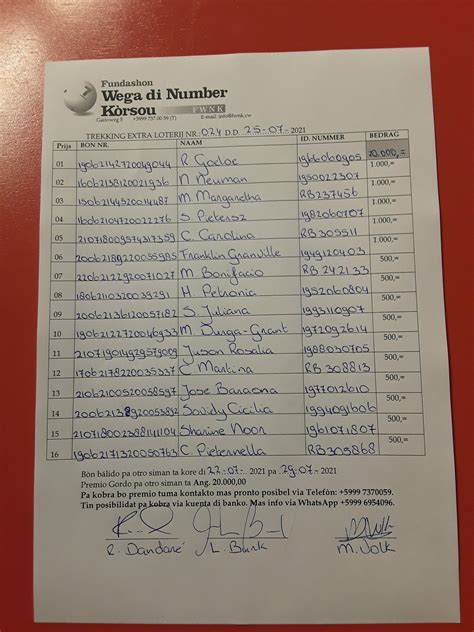 Fundashon
Wega di Number
Kòrsou
FWNK
Gaitoweg 3 +5999 737 00 59 (T) E-mail: info@fwnk.cw
TREKKING EXTRA LOTERIJ NR. 024 D.D 25-07- 2021
Prijs BON NR. NAAM ID. NUMMER BEDRAG
01 190621427 20049044 R Godoc 1966060905 20.000,=
02 160621381 2021936 N. Neuman 1950022307 1.000,=
03 150621445 20014487 M. Margaretha RB237456 1.000,=
04 160621047 20022276 S. Pietersz 1982060707 1.000,=
05 210718009574317359 C. Carolina RB305511 1.000,=
06 20062189220055985 Franklin Granville 1949120403 1.000,=
07 220621229 20071027 M. Bonifacio RB 242133 500,=
08 180621103 20039291 H Petronia 1952060804 500,=
09 200621361 20057182 S. Juliana 1993110907 500,=
10 190621227 20046933 M. Dunga-Grant 1972092614 500,=
11 210719014929579009 Juson Rosalia 1988030705 500,=
12 170621782 20035337 C Martina RB 308813 500,=
13 210621005 20058597 Jose Baracna 1977012610 500,=
14 200621389 20053892 Sovidy Cicilia 1994091606 500,=
15 210718002388141104 Sharine Noor 1961071807 500,=
16 190621713 20050763 C. Pieternella RB309868 500,=
Bòn bálido pa otro siman ta kore di 22-07- 2021 pa 29-07- 2021
Premio Gordo pa otro siman ta Ang. 20.000,00
Pa kobra bo premio tuma kontakto mas pronto posibel via Telefòn: +5999 7370059.
Tin posibilidat pa kobra via kuenta di banko. Mas info via WhatsApp +5999 6954096.
R. Dandaré L. Bunk M. Jolk